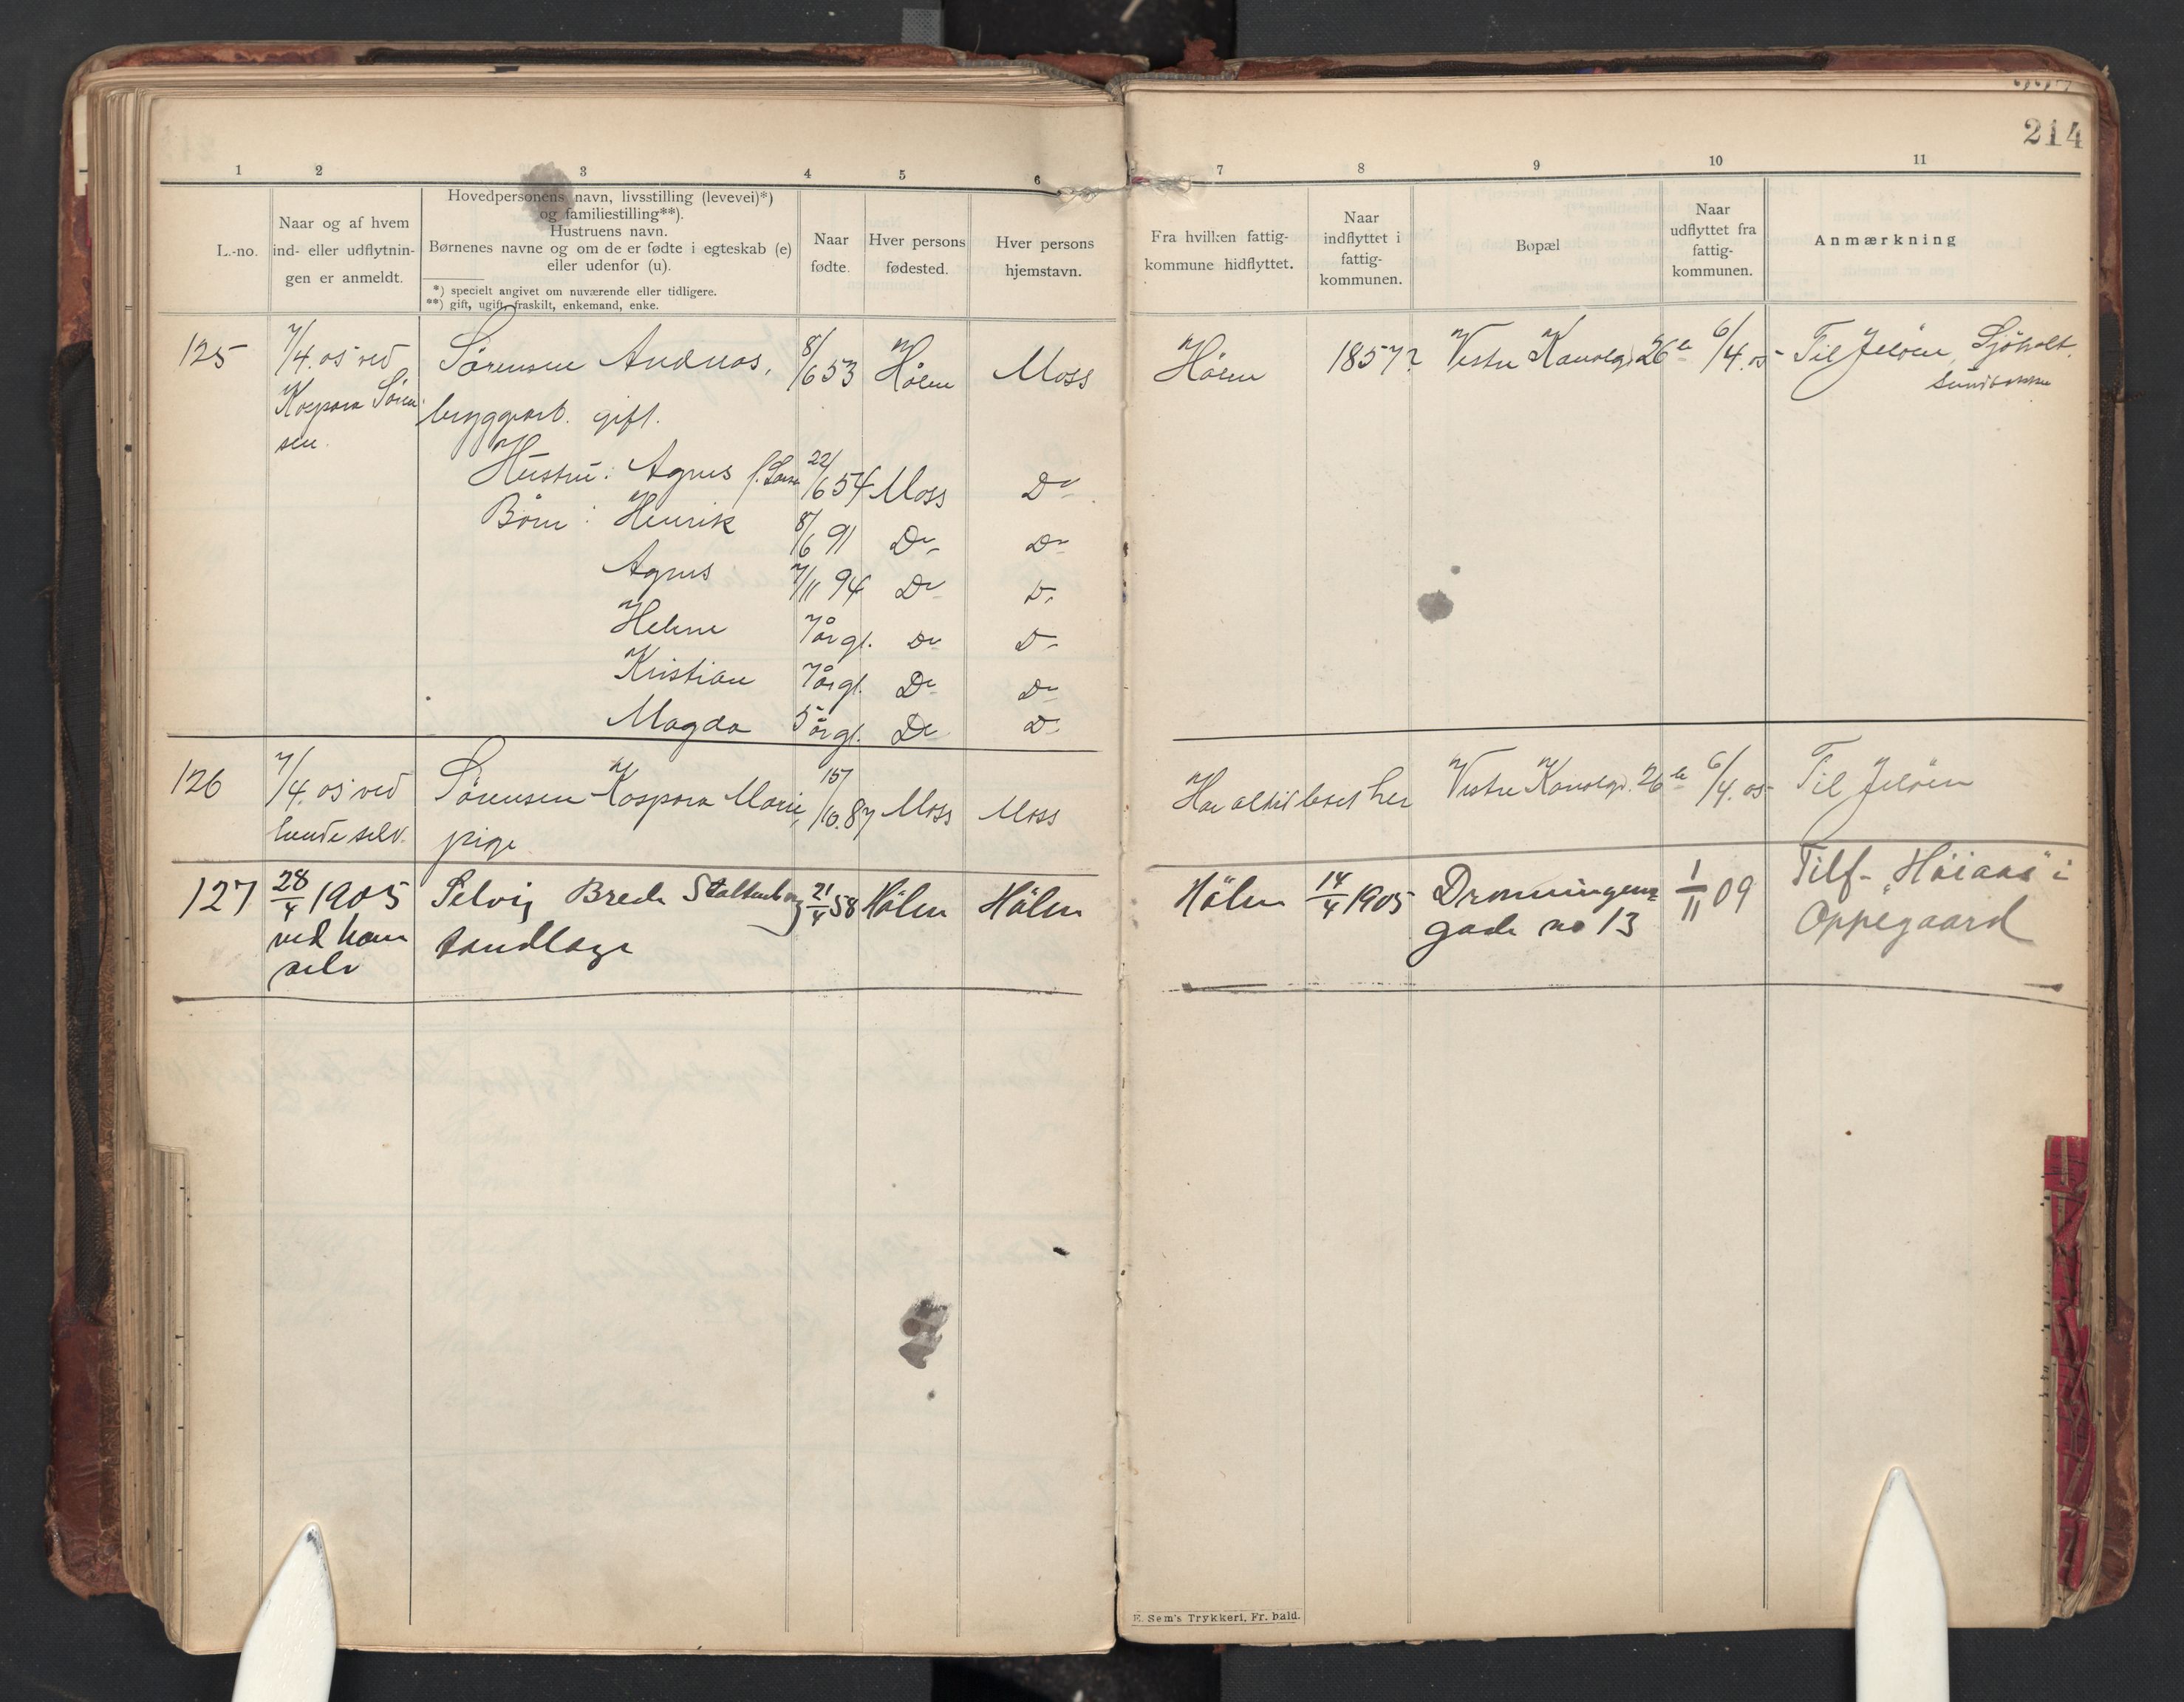 214
1 2 3 4 5 6 7 8 9 10 11
L.-no.
Naar og af hvem
ind- eller udflytnin-
gen er anmeldt.
Hovedpersonens navn, livsstilling (levevei)*)
og familiestilling**).
Hustruens navn.
Børnenes navne og om de er fødte i egteskab (e)
eller udenfor (u).
*) specielt angivet om nuværende eller tidligere.
**) gift, ugift, fraskilt, enkemand, enke.
Naar
fødte.
Hver persons
fødested.
Hver persons
hjemstavn.
Fra hvilken fattig-
kommune hidflyttet.
Naar
indflyttet i
fattig-
kommunen.
Bopæl
Naar
udflyttet fra
fattig-
kommunen.
Anmærkning
125 7/4.05 ved Sørensen Andreas, 8/6 53 Hølen Moss Hølen 1857? Vestre Kanalgd. 26 b 6/4.05 Til Jeløen, Sjøholt,
Kaspara Søren- bryggearb. gift. Sundbakken
sen.
Hustru: Agnes f. Lars 22/6 54 Moss Do
Børn: Henrik 8/6 91 Do Do
Agnes 7/11 94 Do Do
Helene 7 år gl. Do Do
Kristian 7 år gl. Do Do
Magda 5 år gl. Do Do
126 7/4.05 ved Sørensen Kaspara Marie, 15/10.87 Moss Moss Har altid boet her Vestre Kanalgd. 26 b 6/4.05 Til Jeløen
hende selv. pige
127 28/4 1905 Selvig Brede Stoltenberg 21/4 58 Hölen Hölen Hölen 14/4 1905 Dronningens 1/11 09 Tilf. "Höiaas" i
ved ham tandlæge gade no 13 Oppegaard
selv
E. Sem's Trykkeri, Fr. hald.